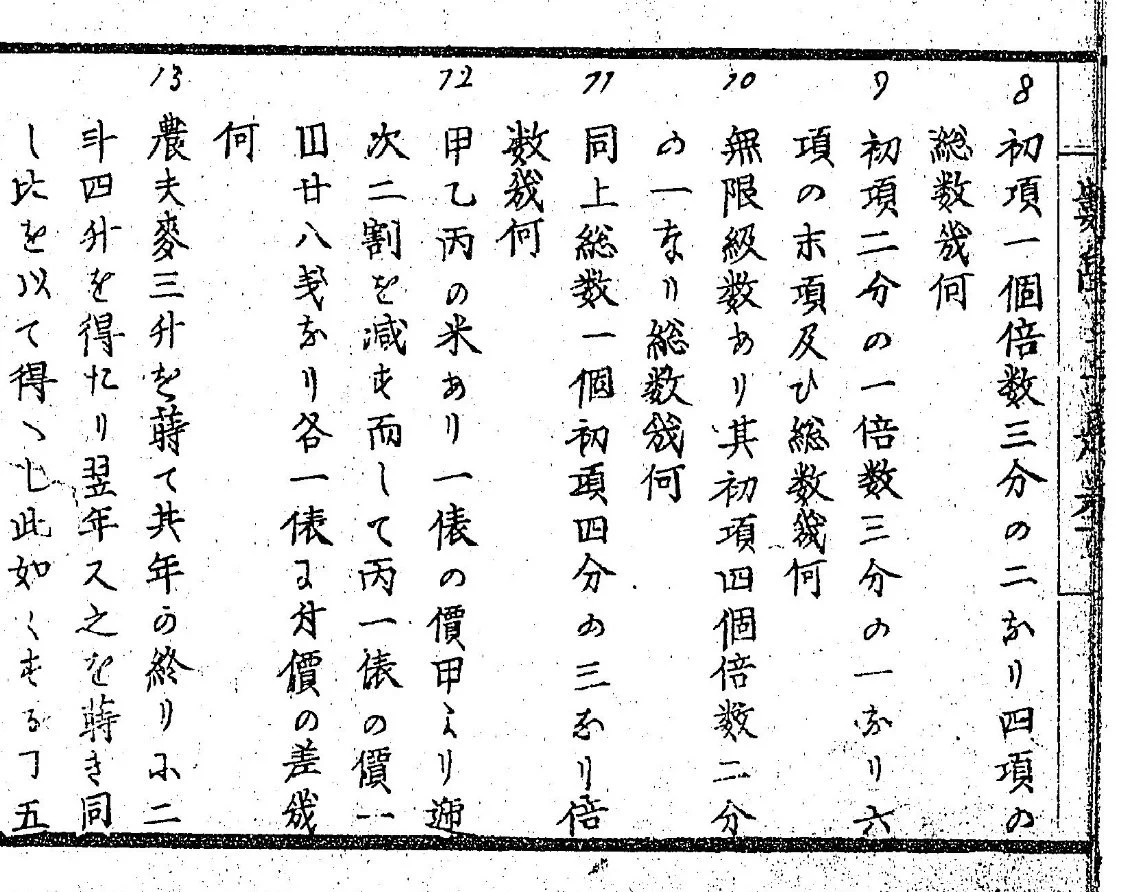 8
初項一個倍数三分の二なり四項の
総数幾何
9
初項二分の一倍数三分の一なり六
項の末項及ひ総数幾何
10
無限級数あり其初項四個倍数二分
の一なり総数幾何
11
同上総数一個初項四分の三なり倍
数幾何
12
甲乙丙の米あり一俵の價甲より逓
次二割を減す而して丙一俵の價一
円廿八戋なり各一俵に付價の差幾
何
13
農夫麥三升を蒔て其年の終りに二
斗四升を得たり翌年又之を蒔き同
し比を以て得へし此如くするヿ五